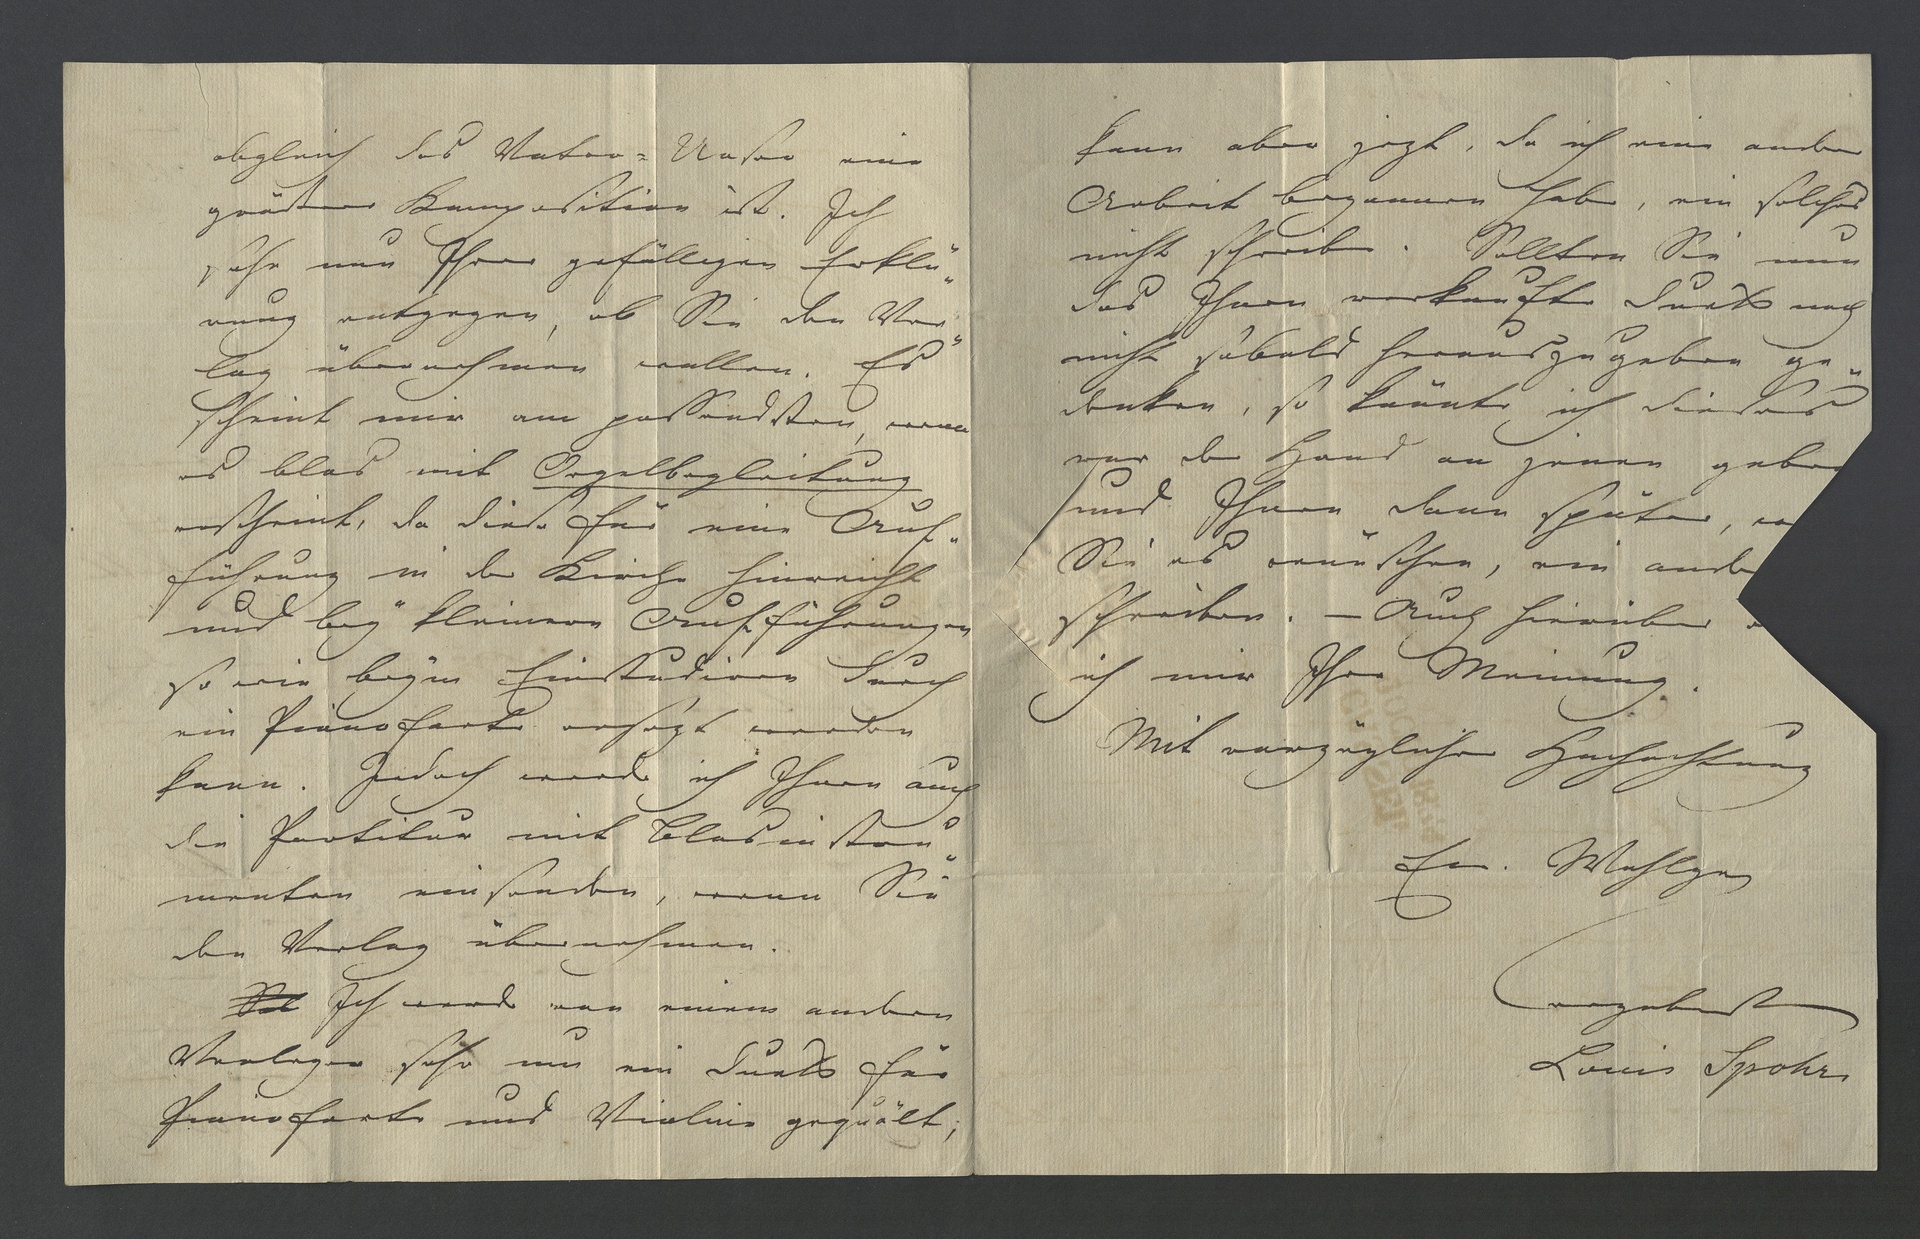 obgleich das Vater-Unser eine
größere Komposition ist. Ich
sehe nun Ihrer gefälligen Erklä-
rung entgegen, ob Sie den Ver-
lag übernehmen wollen. Es
scheint mir am passendsten, wenn
es blos mit Orgelbegleitung
erscheint, da diese für eine Auf-
führung in der Kirche hinreicht
und bey kleinern Aufführungen
so wie beym Einstudiren durch
ein Pianoforte ersezt werden
kann. Jedoch werde ich Ihnen auch
die Partitur mit Blasinstru-
menten einsenden, wenn Sie
den Verlag übernehmen.
Ich werde von einem andern
Verleger sehr um ein Duett für
Pianoforte und Violine gequält,
kann aber jezt, da ich eine andere
Arbeit begonnen habe, ein solches
nicht schreiben. Sollten Sie nun
das Ihnen verkaufte Duett noch
nicht sobald herauszugeben ge-
denken, so könnte ich dieses
vor der Hand an jenen geben
und Ihnen dann später,
Sie es wünschen, ein ande
schreiben. – Auch hierüber
ich mir Ihre Meinung.
Mit vorzüglicher Hochachtung
Ew. Wohlgeb
ergebenst
Louis Spohr